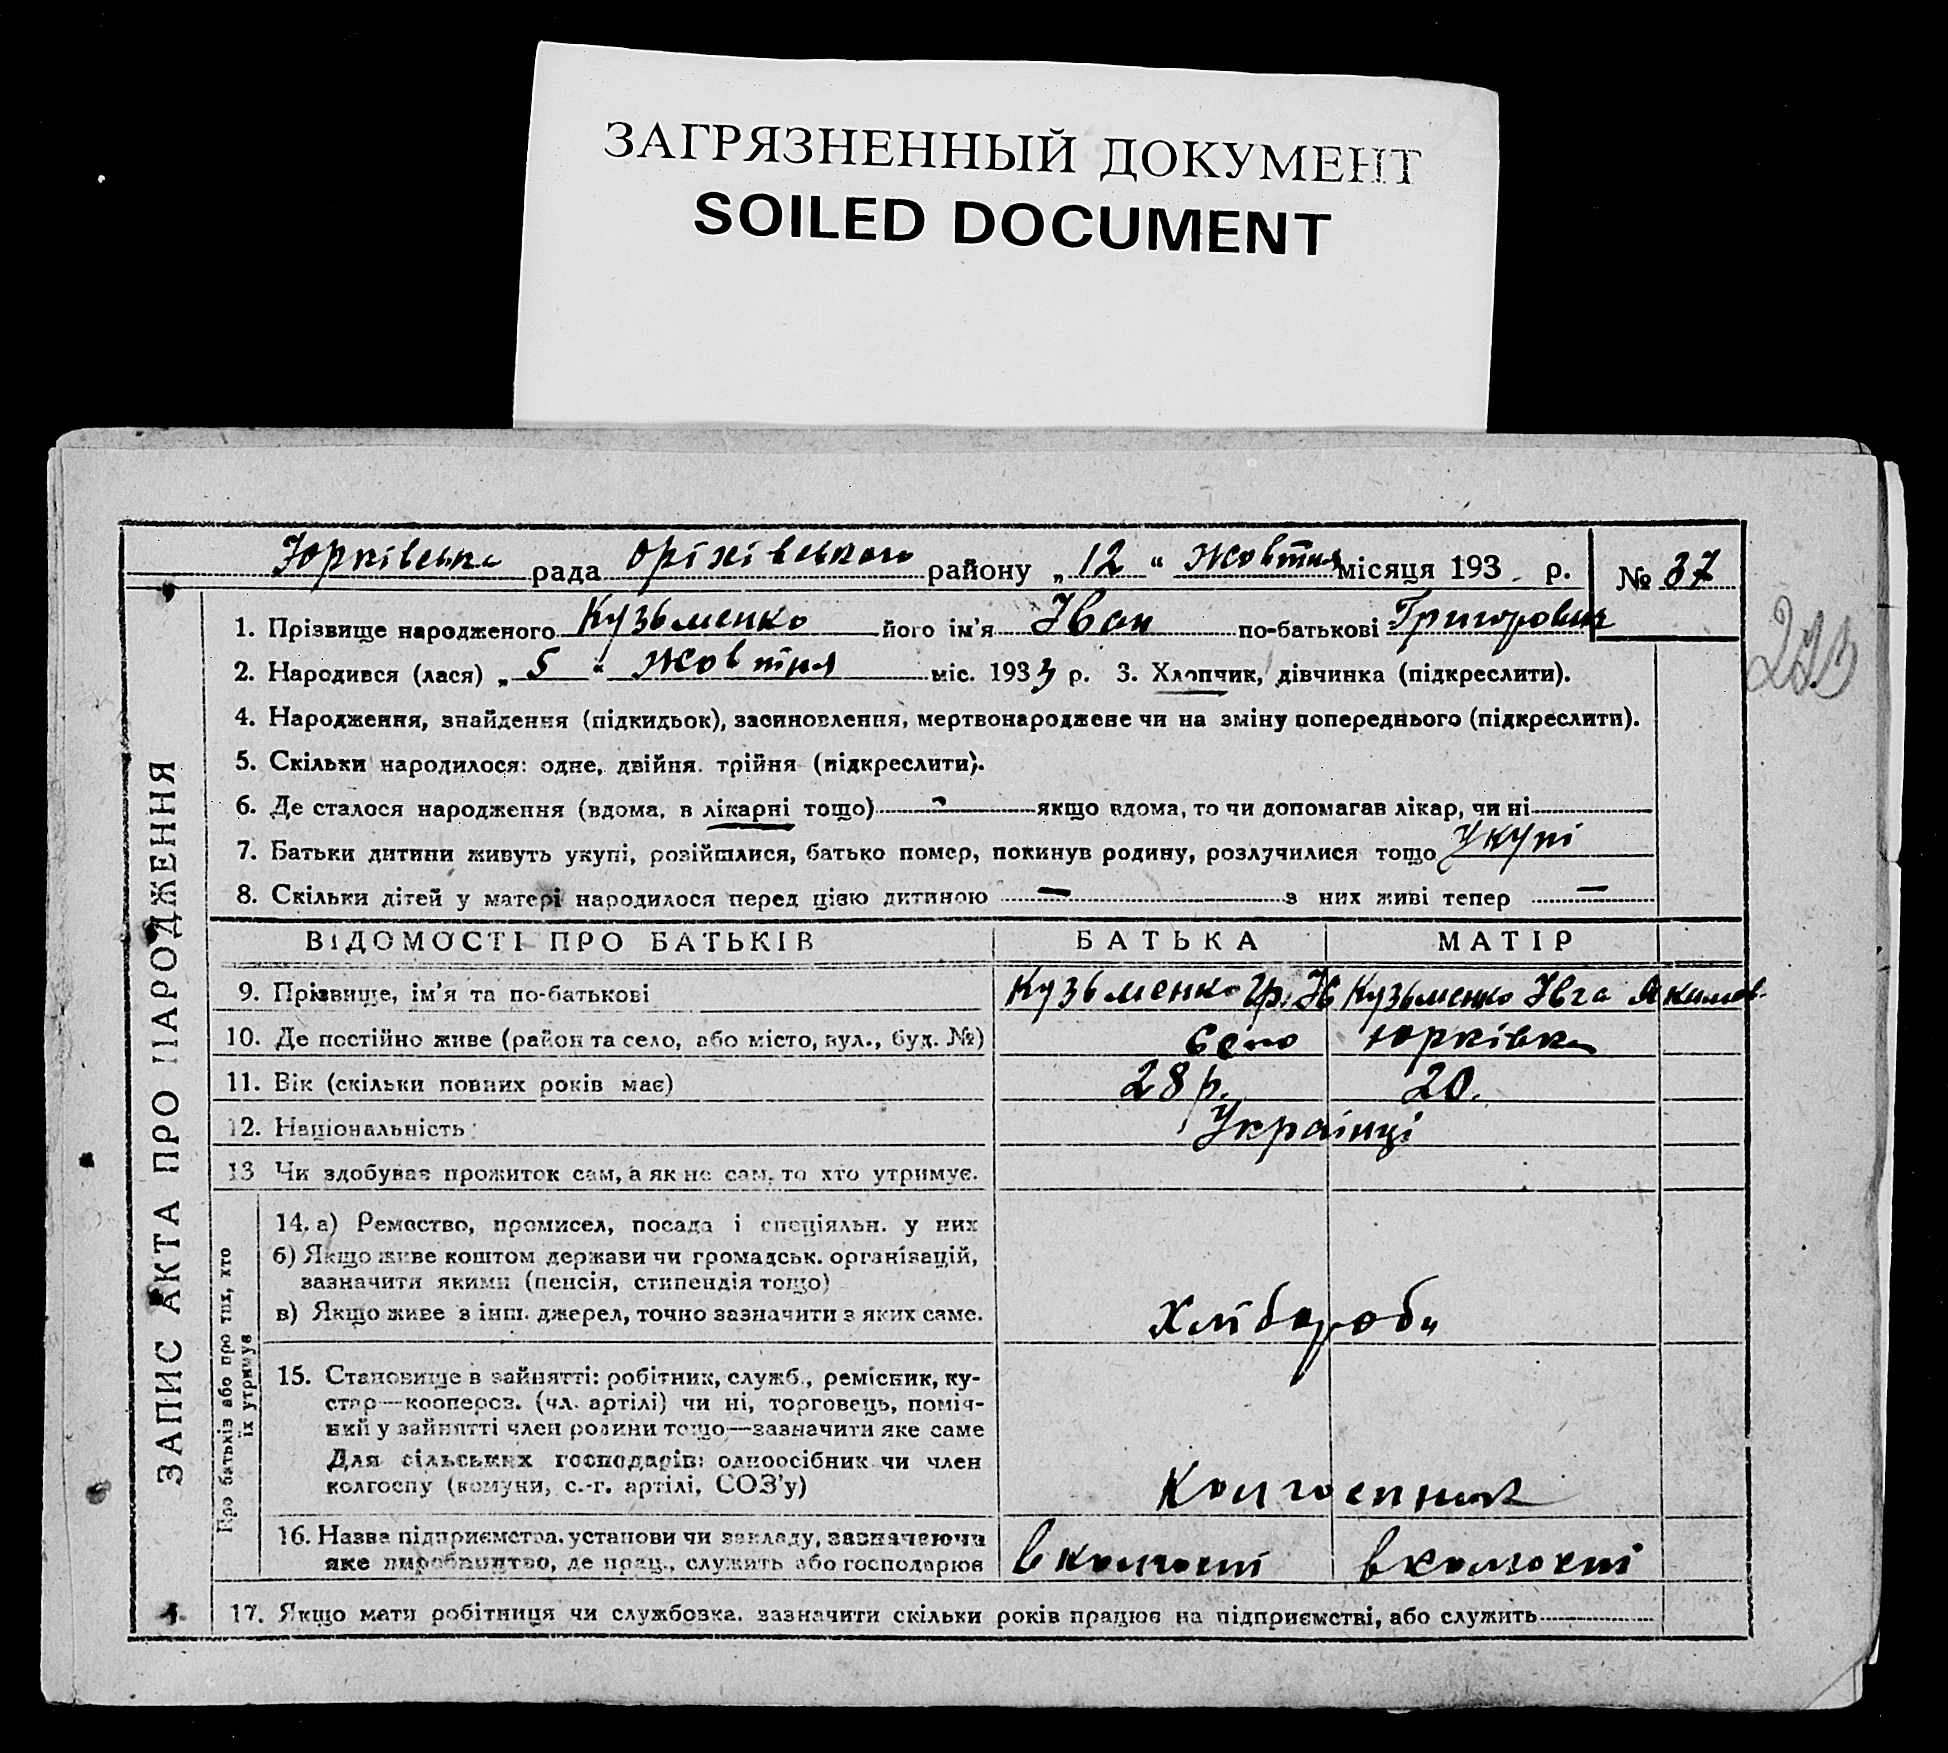 ЗАГРЯЗНЕННЫЙ ДОКУМЕНТ
SOILED DOCUMENT
Юрківська рада Оріхівського району „12“ Жовтня місяця 193 р. № 37
ЗАПИС АКТА ПРО НАРОДЖЕННЯ
1. Прізвище народженого Кузьменко його ім'я Іван по-батькові Григорович
2. Народився (лася) „5“ Жовтня міс. 1933 р. 3. Хлопчик, дівчинка (підкреслити).
4. Народження, знайдення (підкидьок), засиновлення, мертвонароджене чи на зміну попереднього (підкреслити).
5. Скільки народилося: одне, двійня. трійня (підкреслити).
6. Де сталося народження (вдома, в лікарні тощо) - якщо вдома, то чи допомагав лікар, чи ні
7. Батьки дитини живуть укупі, розійшлися, батько помер, покинув родину, розлучилися тощо Укупі
8. Скільки дітей у матері народилося перед цією дитиною — з них живі тепер —
ВІДОМОСТІ ПРО БАТЬКІВ БАТЬКА МАТІР
9. Прізвище, ім'я та по-батькові Кузьменко Гр. Ів Кузьменко Івга Якимов.
10. Де постійно живе (район та село, або місто, вул., буд. №) село Юрківка
11. Вік (скільки повних років має) 28 р. 20.
12. Національність Українці
13 Чи здобував прожиток сам, а як не сам, то хто утримує.
Про батьків або про тих, хто їх утримує
14. а) Ремество, промисел, посада і спеціяльн. у них
б) Якщо живе коштом держави чи громадськ. організацій,
зазначити якими (пенсія, стипендія тощо)
в) Якщо живе з інш. джерел, точно зазначити з яких саме. Хлібороби
15. Становище в зайнятті: робітник, служб., ремісник, ку-
стар—коопероз. (чл. артілі) чи ні, торговець, поміч-
ний у зайнятті член родини тощо—зазначити яке саме
Для сільських господарів: одноосібник чи член
колгоспу (комуни, с.-г. артілі, СОЗ'у) Колгоспник
16. Назва підприємства, установи чи закладу, зазначаючи
яке виробництво, де прац., служить або господарює в колгоспі в колгоспі
17. Якщо мати робітниця чи службовка. зазначити скільки років працює на підприємстві, або служить